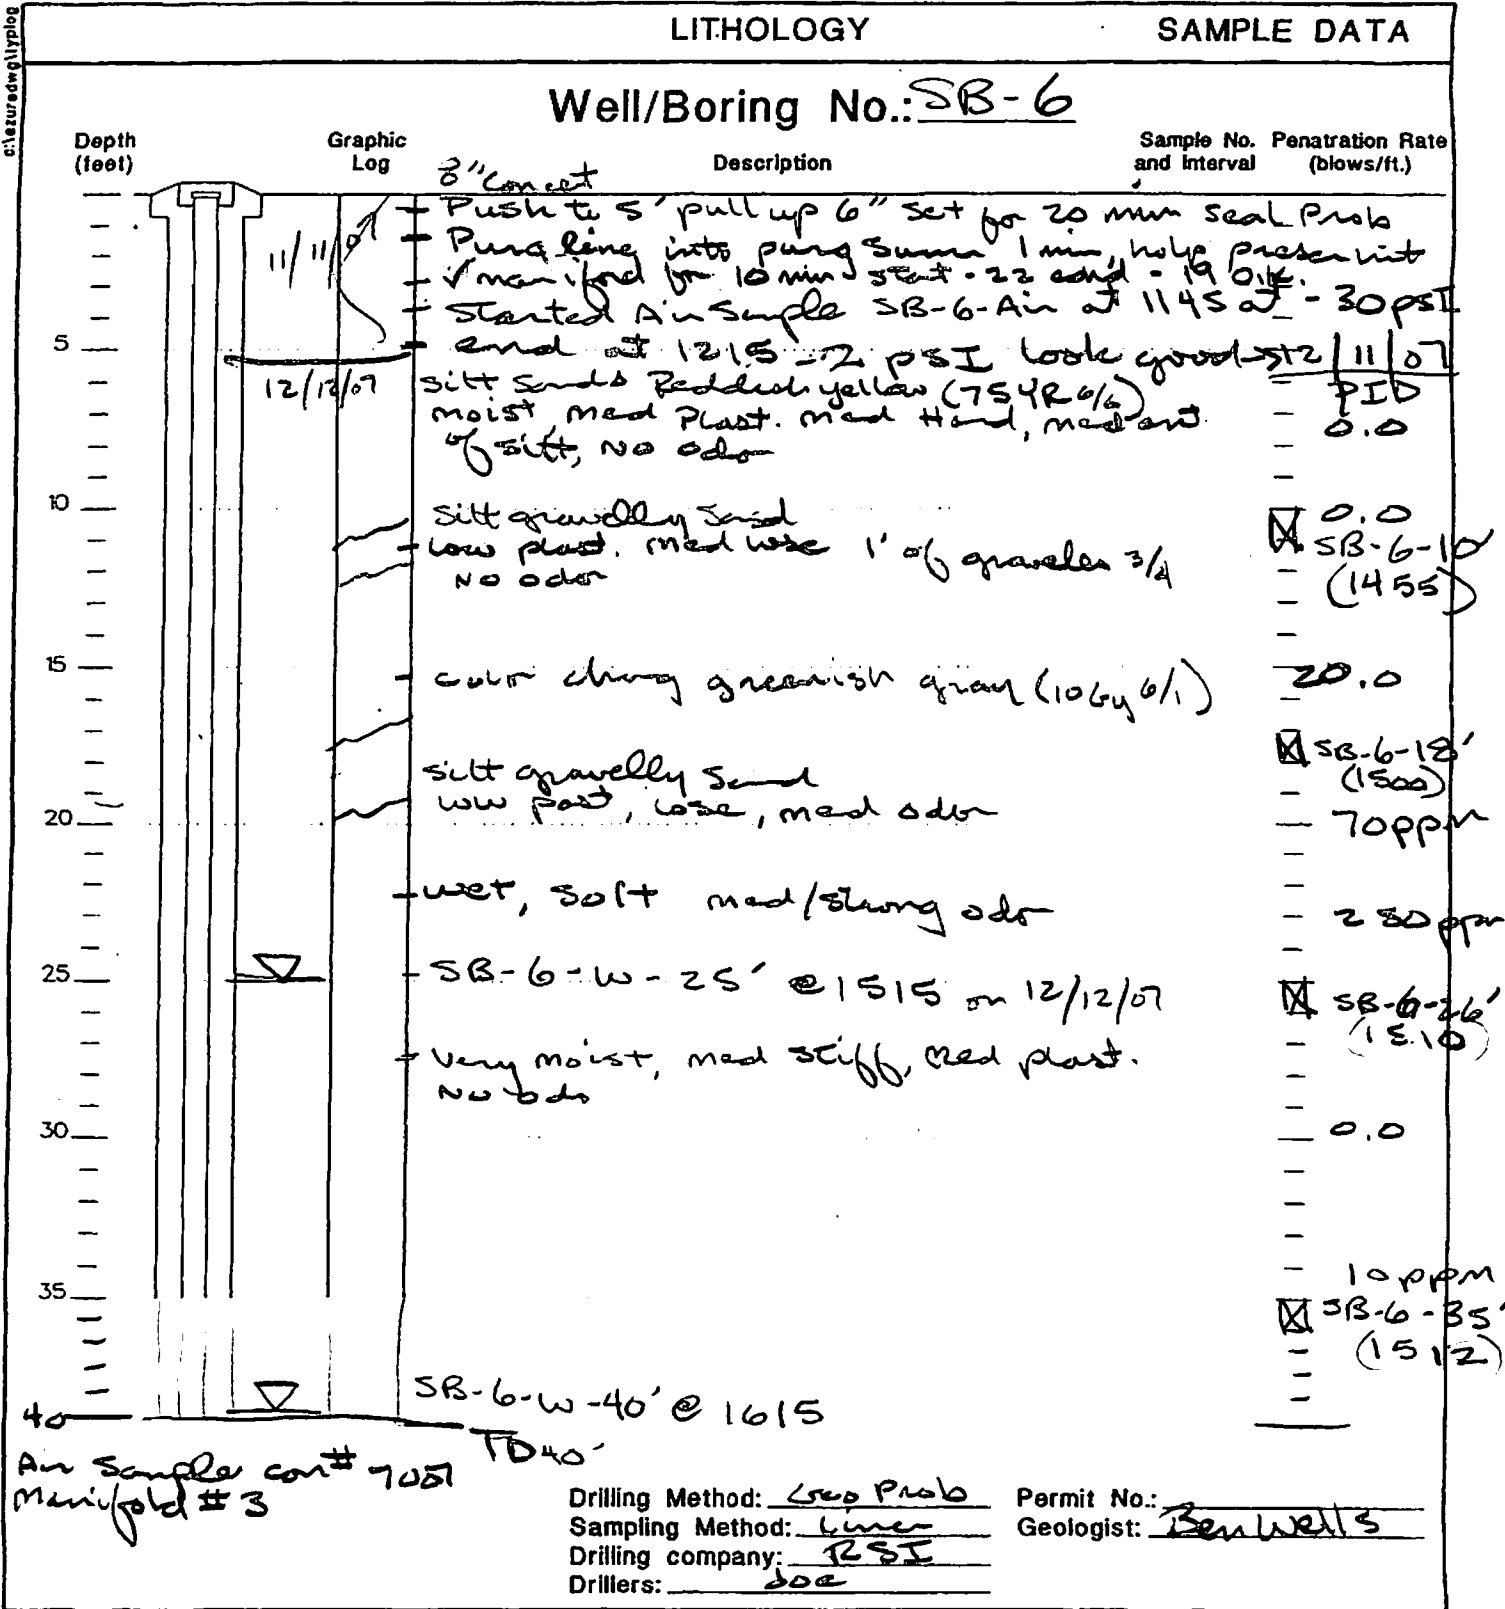 c:\azuradwg\typlog
LITHOLOGY
SAMPLE DATA
Well/Boring No.: SB-6
Depth (feet)
Graphic Log
Description
Sample No. and Interval
Penatration Rate (blows/ft.)
8" Concet
Push to 5' pull up 6" set for 20 min seal Prob
Purg line into purg Summ 1 min, hold
✓ maniford for 10 min start - 22 - 19 O.K.
Started Air Sample SB-6-Air at 1145 at - 30 psI
end at 1215 -2 psI look good
12/11/07
5
12/12/07
silt sands Reddish yellow (75YR 6/6)
PID
moist, med Plast. med Hard, med amt
0.0
of silt, No odor
10
silt gravelly Sand
0.0
low plast. med lose 1' of graveles 3/4
SB-6-10'
No odor
(1455)
15
color chang greenish gray (10Gy 6/1)
20.0
SB-6-18'
silt gravelly Sand
(1500)
low past, lose, med odor
20
70ppm
wet, soft med/strong odor
280 ppm
25
SB-6-W-25' @ 1515 on 12/12/07
SB-6-26'
(1510)
very moist, med stiff, med plast.
No odo
30
0.0
10 ppm
35
SB-6-35'
(1512)
SB-6-W-40' @ 1615
40
TD 40'
Air Sample con#
Manifold #3
Drilling Method: Geo Prob
Permit No.:
Sampling Method: Liner
Geologist: Ben Wells
Drilling company: RSI
Drillers: Joe